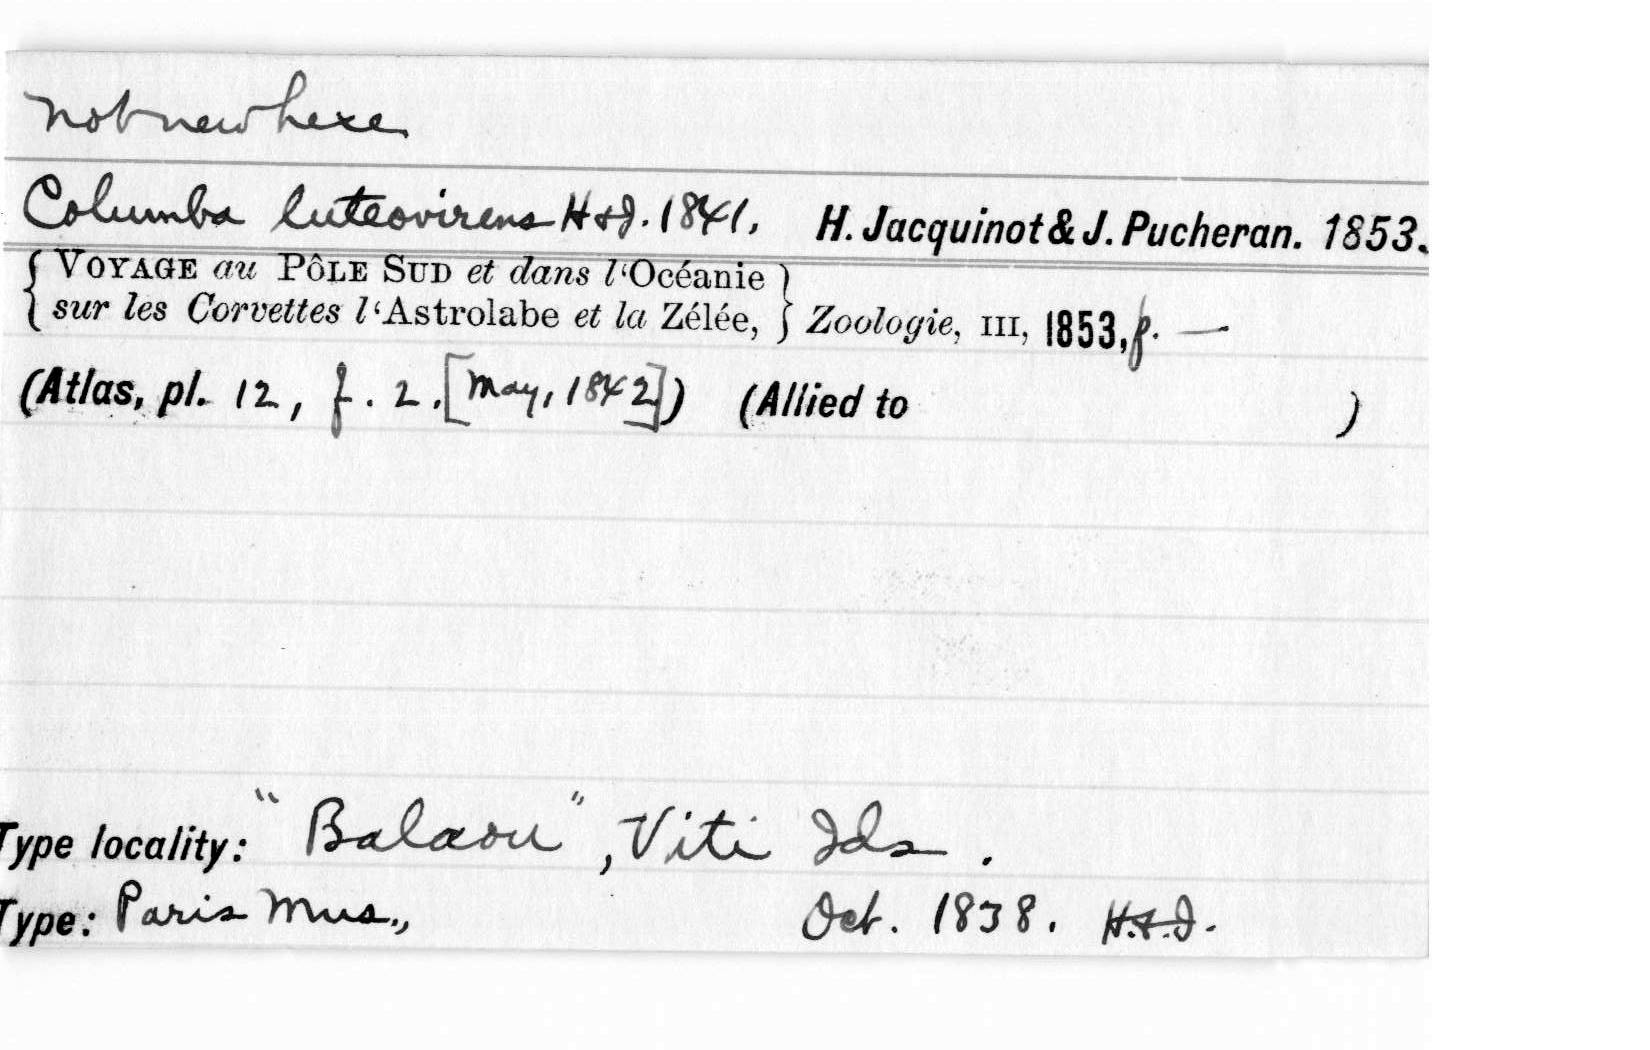 not new here
Columba luteovirens H & J. 1841. H. Jacquinot & J. Pucheran. 1853.
{ VOYAGE au PÔLE SUD et dans l‘Océanie }
{ sur les Corvettes l‘Astrolabe et la Zélée, } Zoologie, III, 1853, p. —
(Atlas, pl. 12, f. 2. [May, 1842]) (Allied to )
Type locality: "Balaou", Viti Ids.
Type: Paris Mus., Oct. 1838. H. & J.